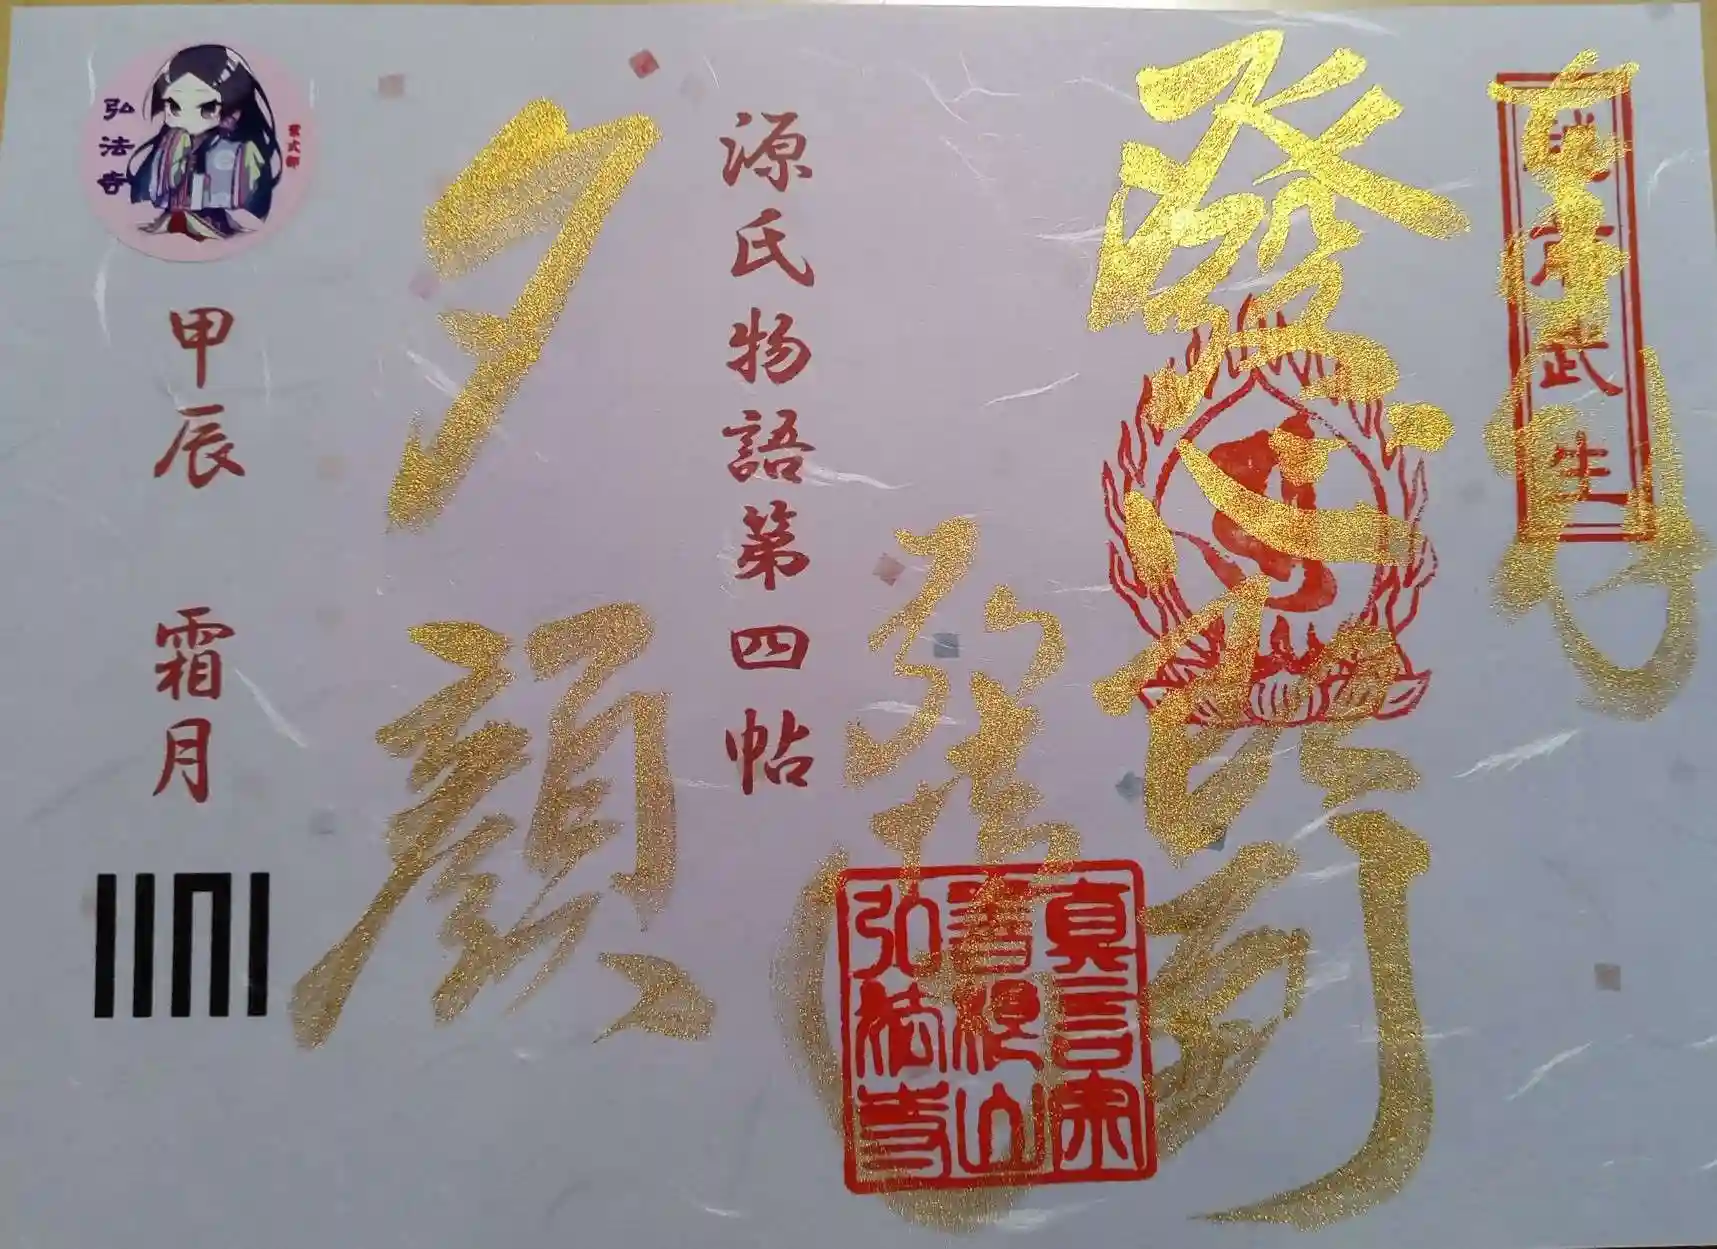 越前武生
發心即到
弘法寺
真言宗
弘法寺
源氏物語第四帖
夕顔
弘法寺
紫式部
甲辰 霜月